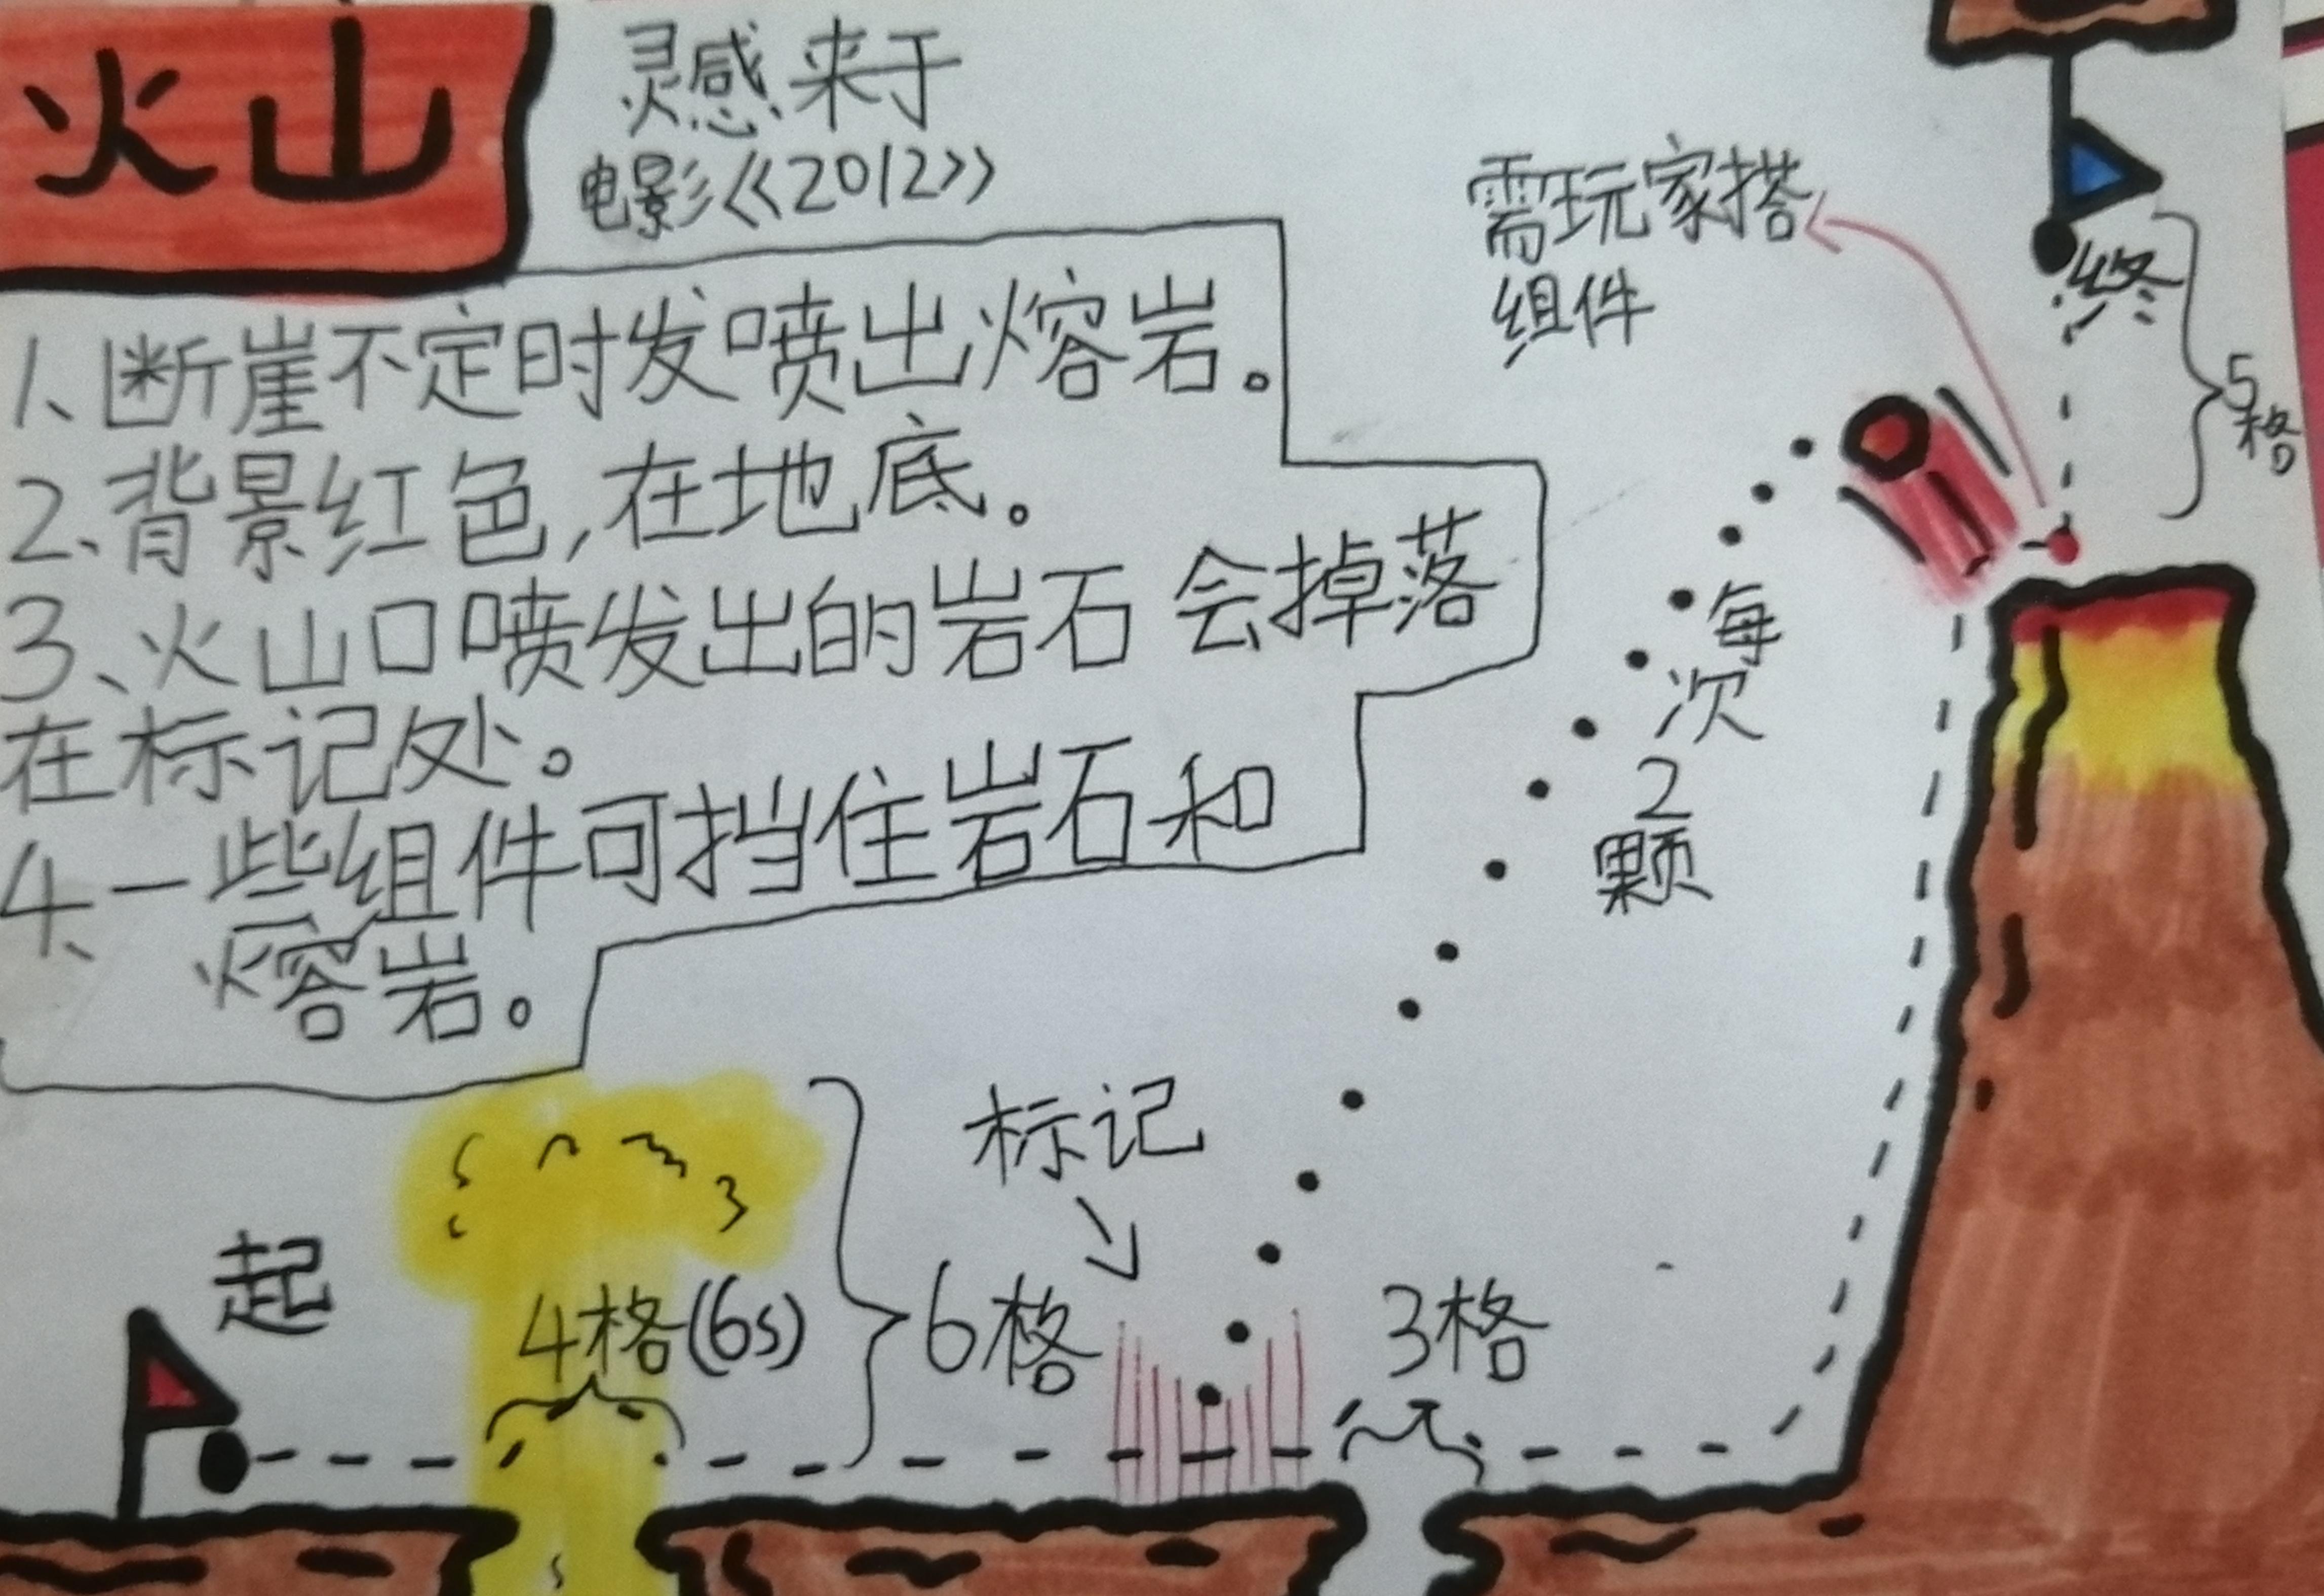 火山
灵感来于
电影《2012》
1、断崖不定时发喷出熔岩。
2、背景红色,在地底。
3、火山口喷发出的岩石会掉落
在标记处。
4、一些组件可挡住岩石和
熔岩。
需玩家搭
组件
终
5
格
每
次
2
颗
标记
起
4格(6s)
6格
3格